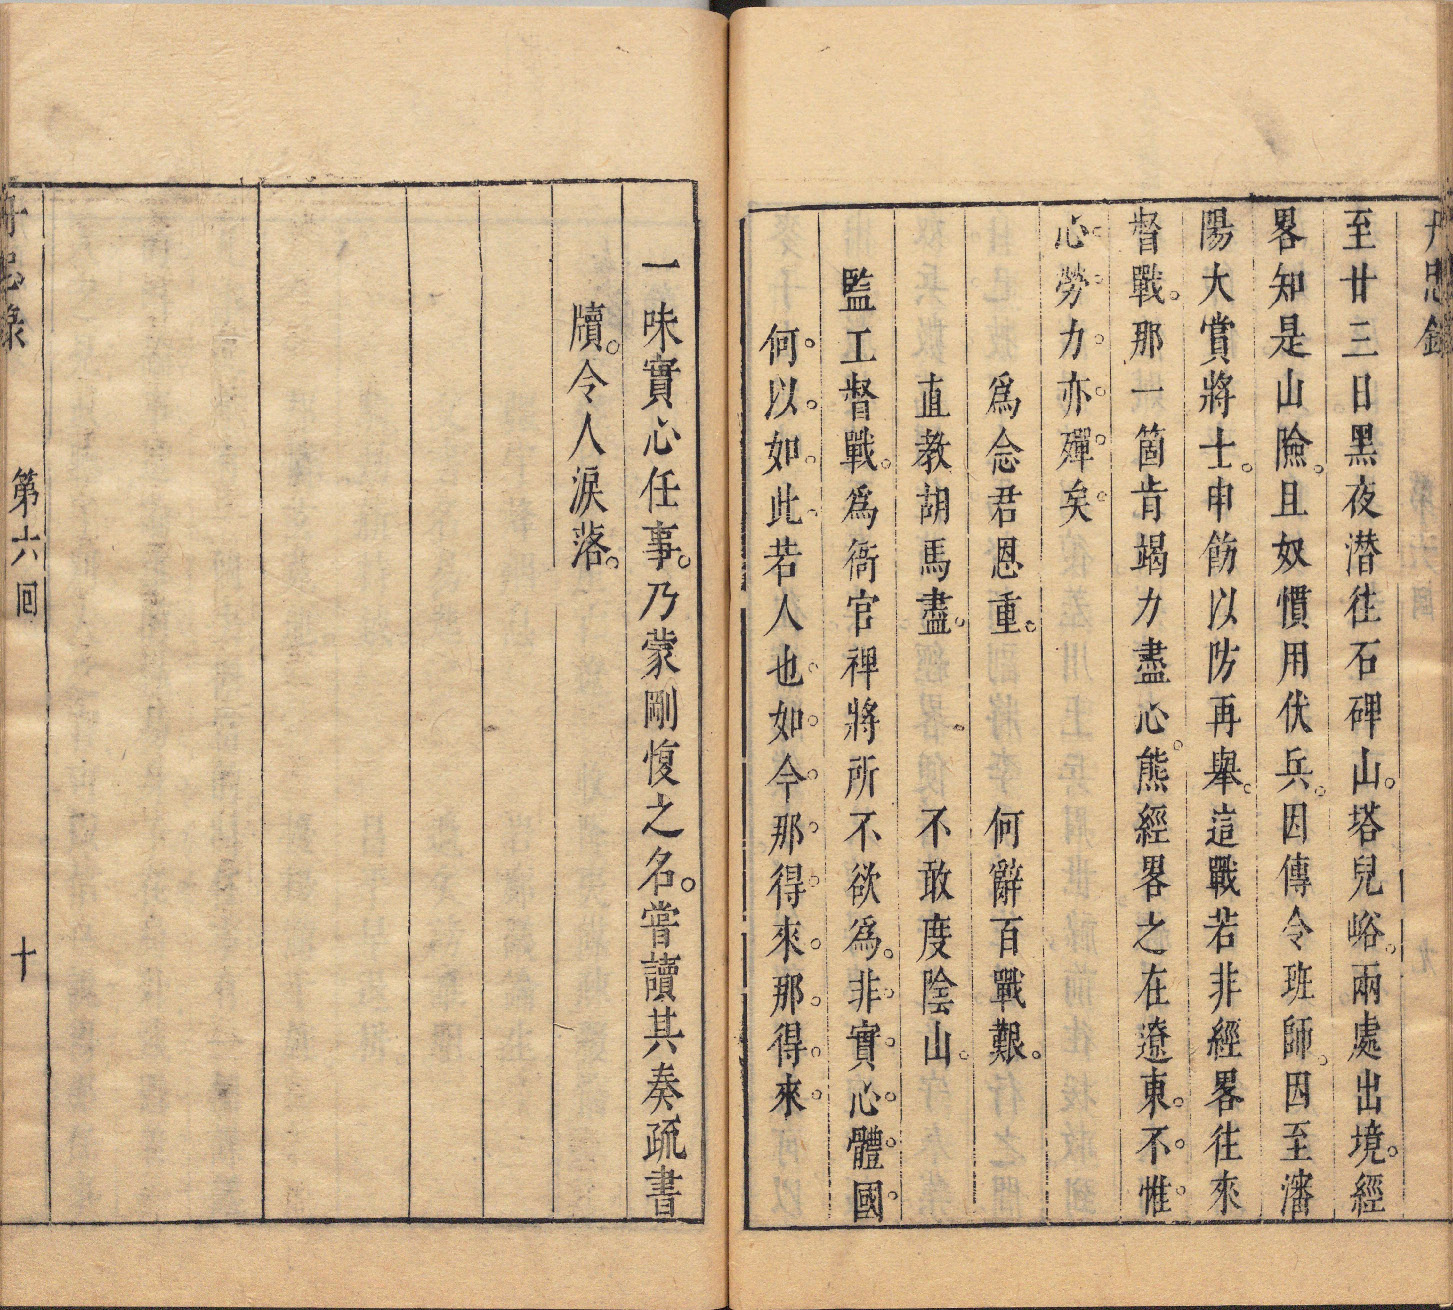 丹忠錄
至廿三日黑夜潜往石碑山。塔兒峪。兩處出境。經
畧知是山險。且奴慣用伏兵。因傳令班師。因至瀋
陽大賞將士。申飭以防再舉。這戰若非經畧往來
督戰。那一箇肯竭力盡心。熊經畧之在遼東。不。惟。
心。勞。力。亦。殫。矣。
爲念君恩重。　何辭百戰艱。
直教胡馬盡。　不敢度陰山。
監工督戰。爲衙官裨將所不欲爲。非。實。心。體。國。
何。以。如。此。若人也。如。今。那。得。來。那。得。來。
一味實心任事。乃蒙剛愎之名。嘗讀其奏疏書
牘。令人淚落。
丹忠錄
第六回
十